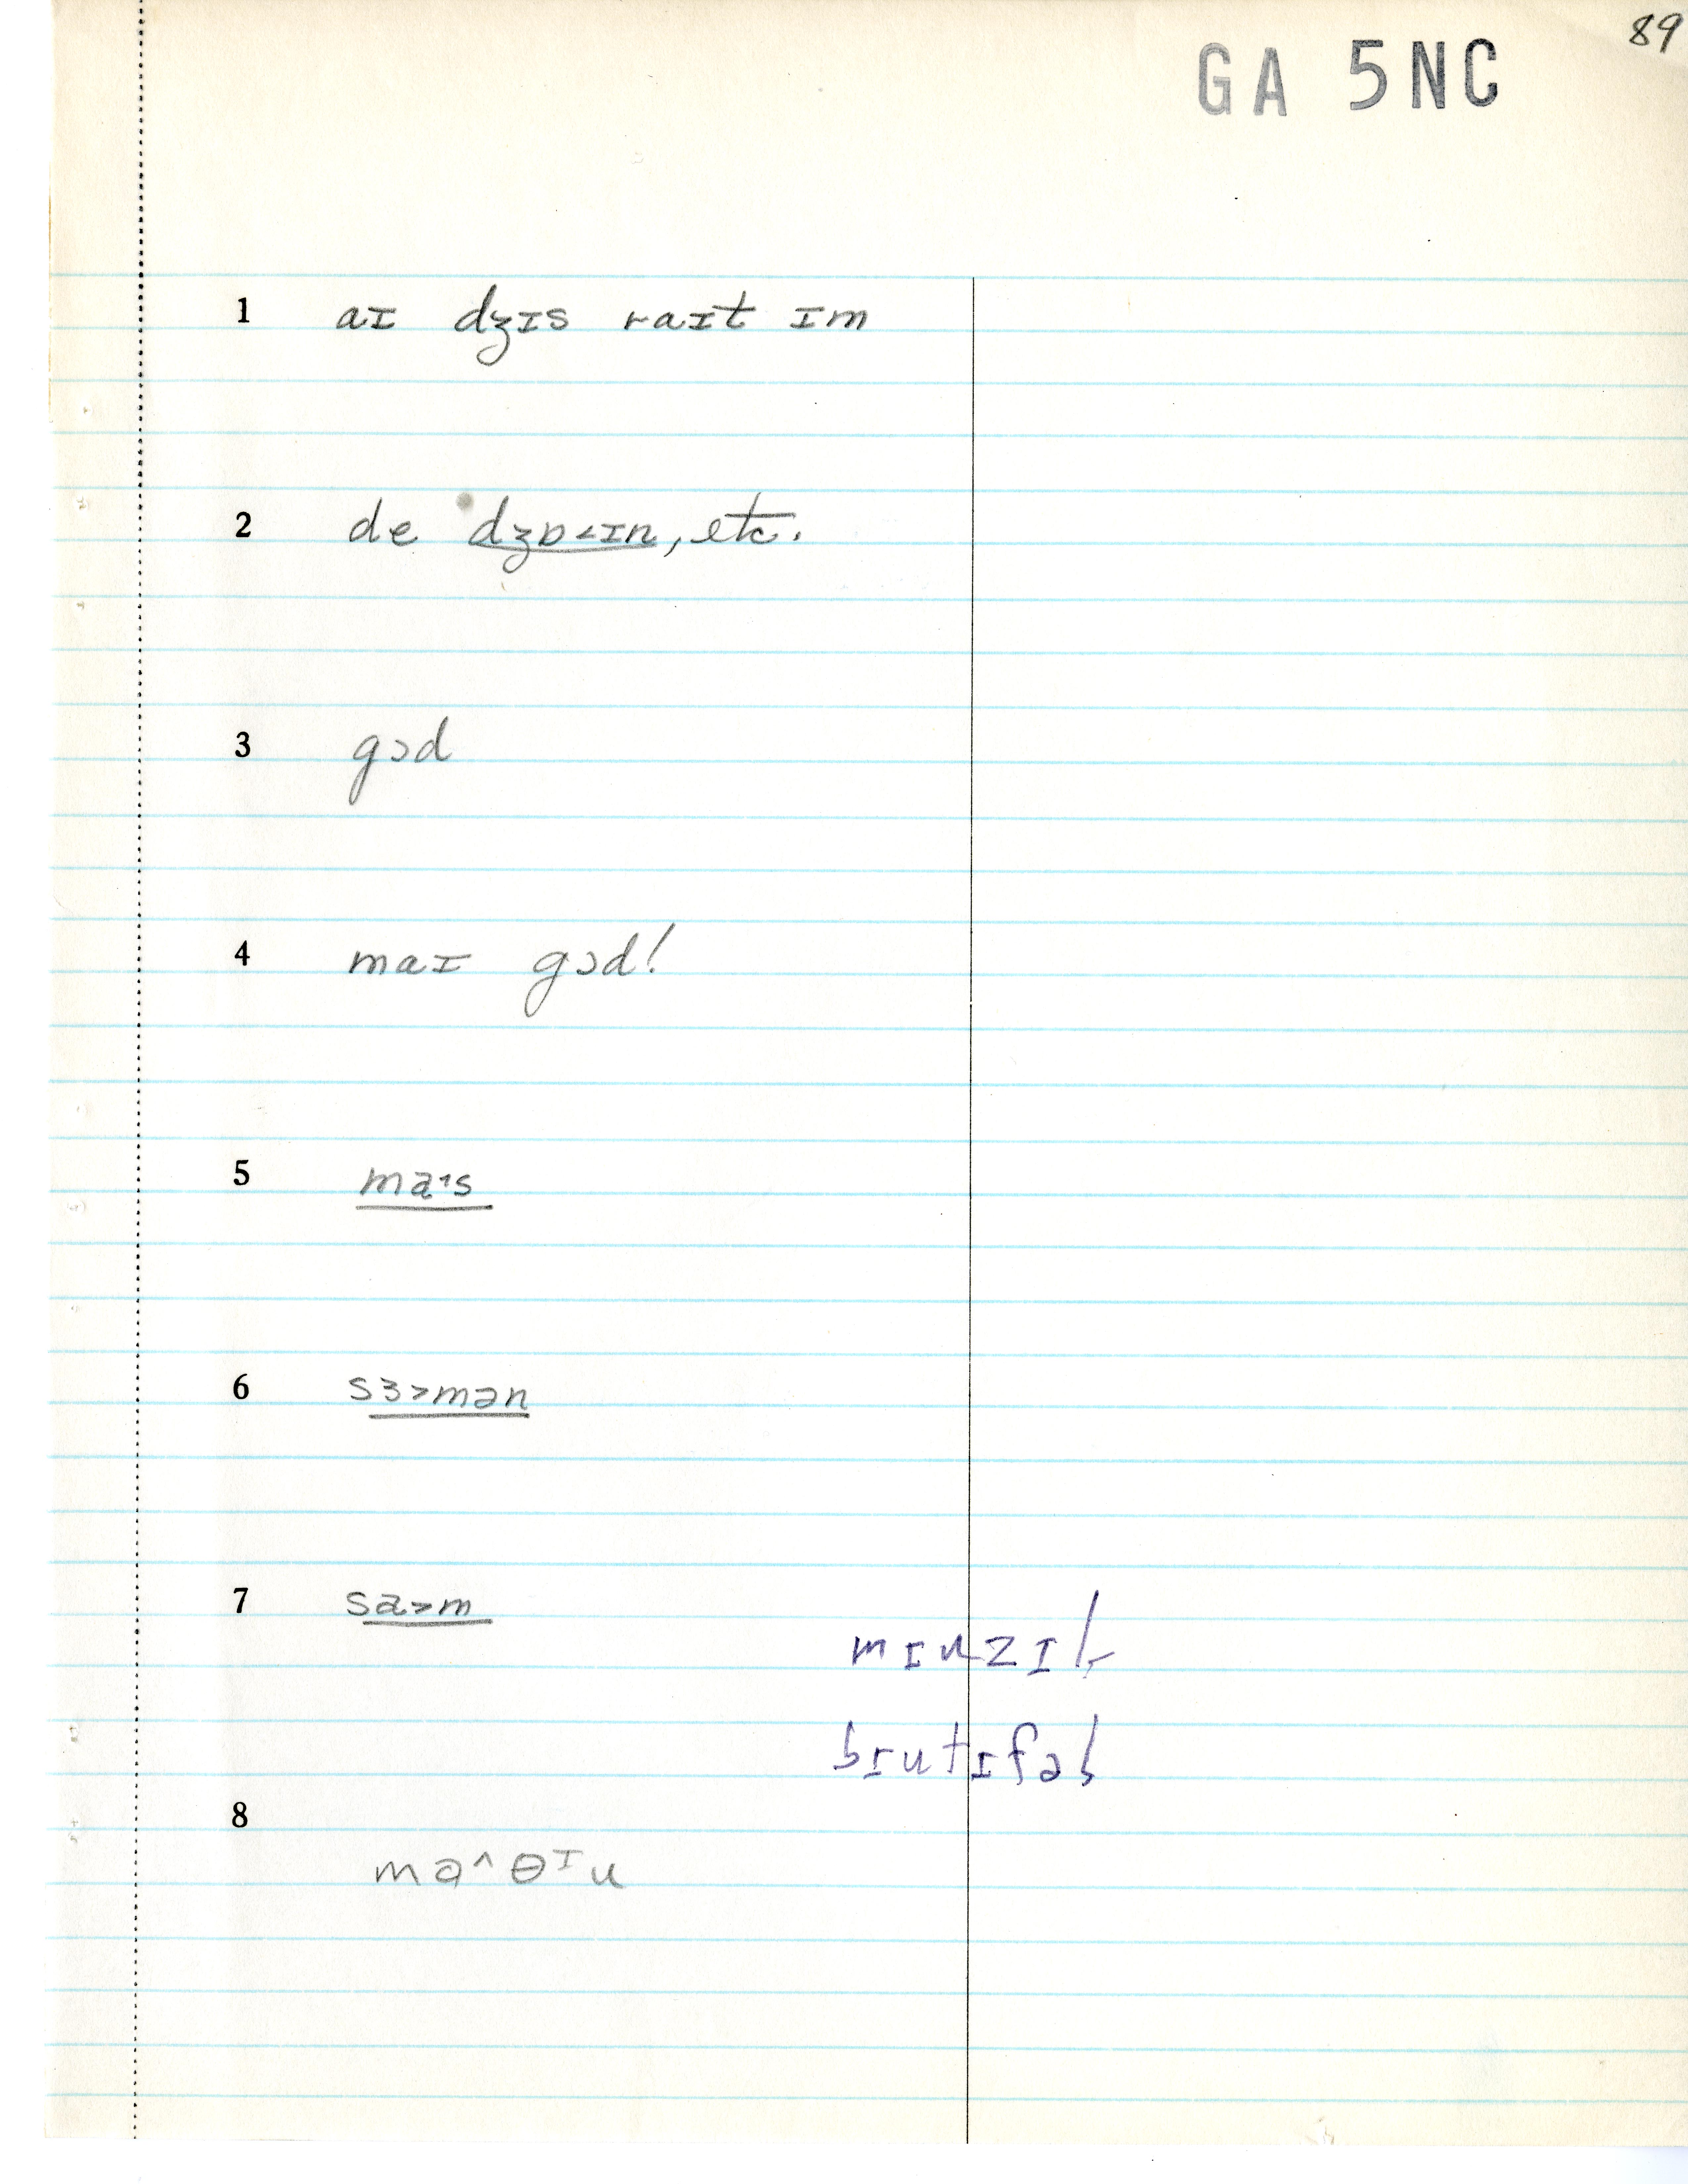 89
GA 5NC
1 aɪ dʒɪs raɪt ɪm
2 de dʒɒ<ɪn, etc.
3 gɔd
4 maɪ gɔd!
5 ma˔s
6 sɜ>mən
7 sa>m
mɪuzɪk
bɪutɪfəl
8
ma^θɪu